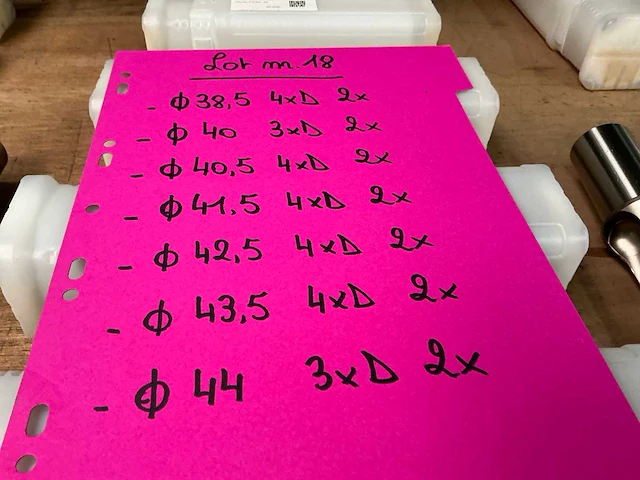 Lot m. 18
- Φ 38,5 4xD 2x
- Φ 40 3xD 2x
- Φ 40,5 4xD 2x
- Φ 41,5 4xD 2x
- Φ 42,5 4xD 2x
- Φ 43,5 4xD 2x
- Φ 44 3xD 2x